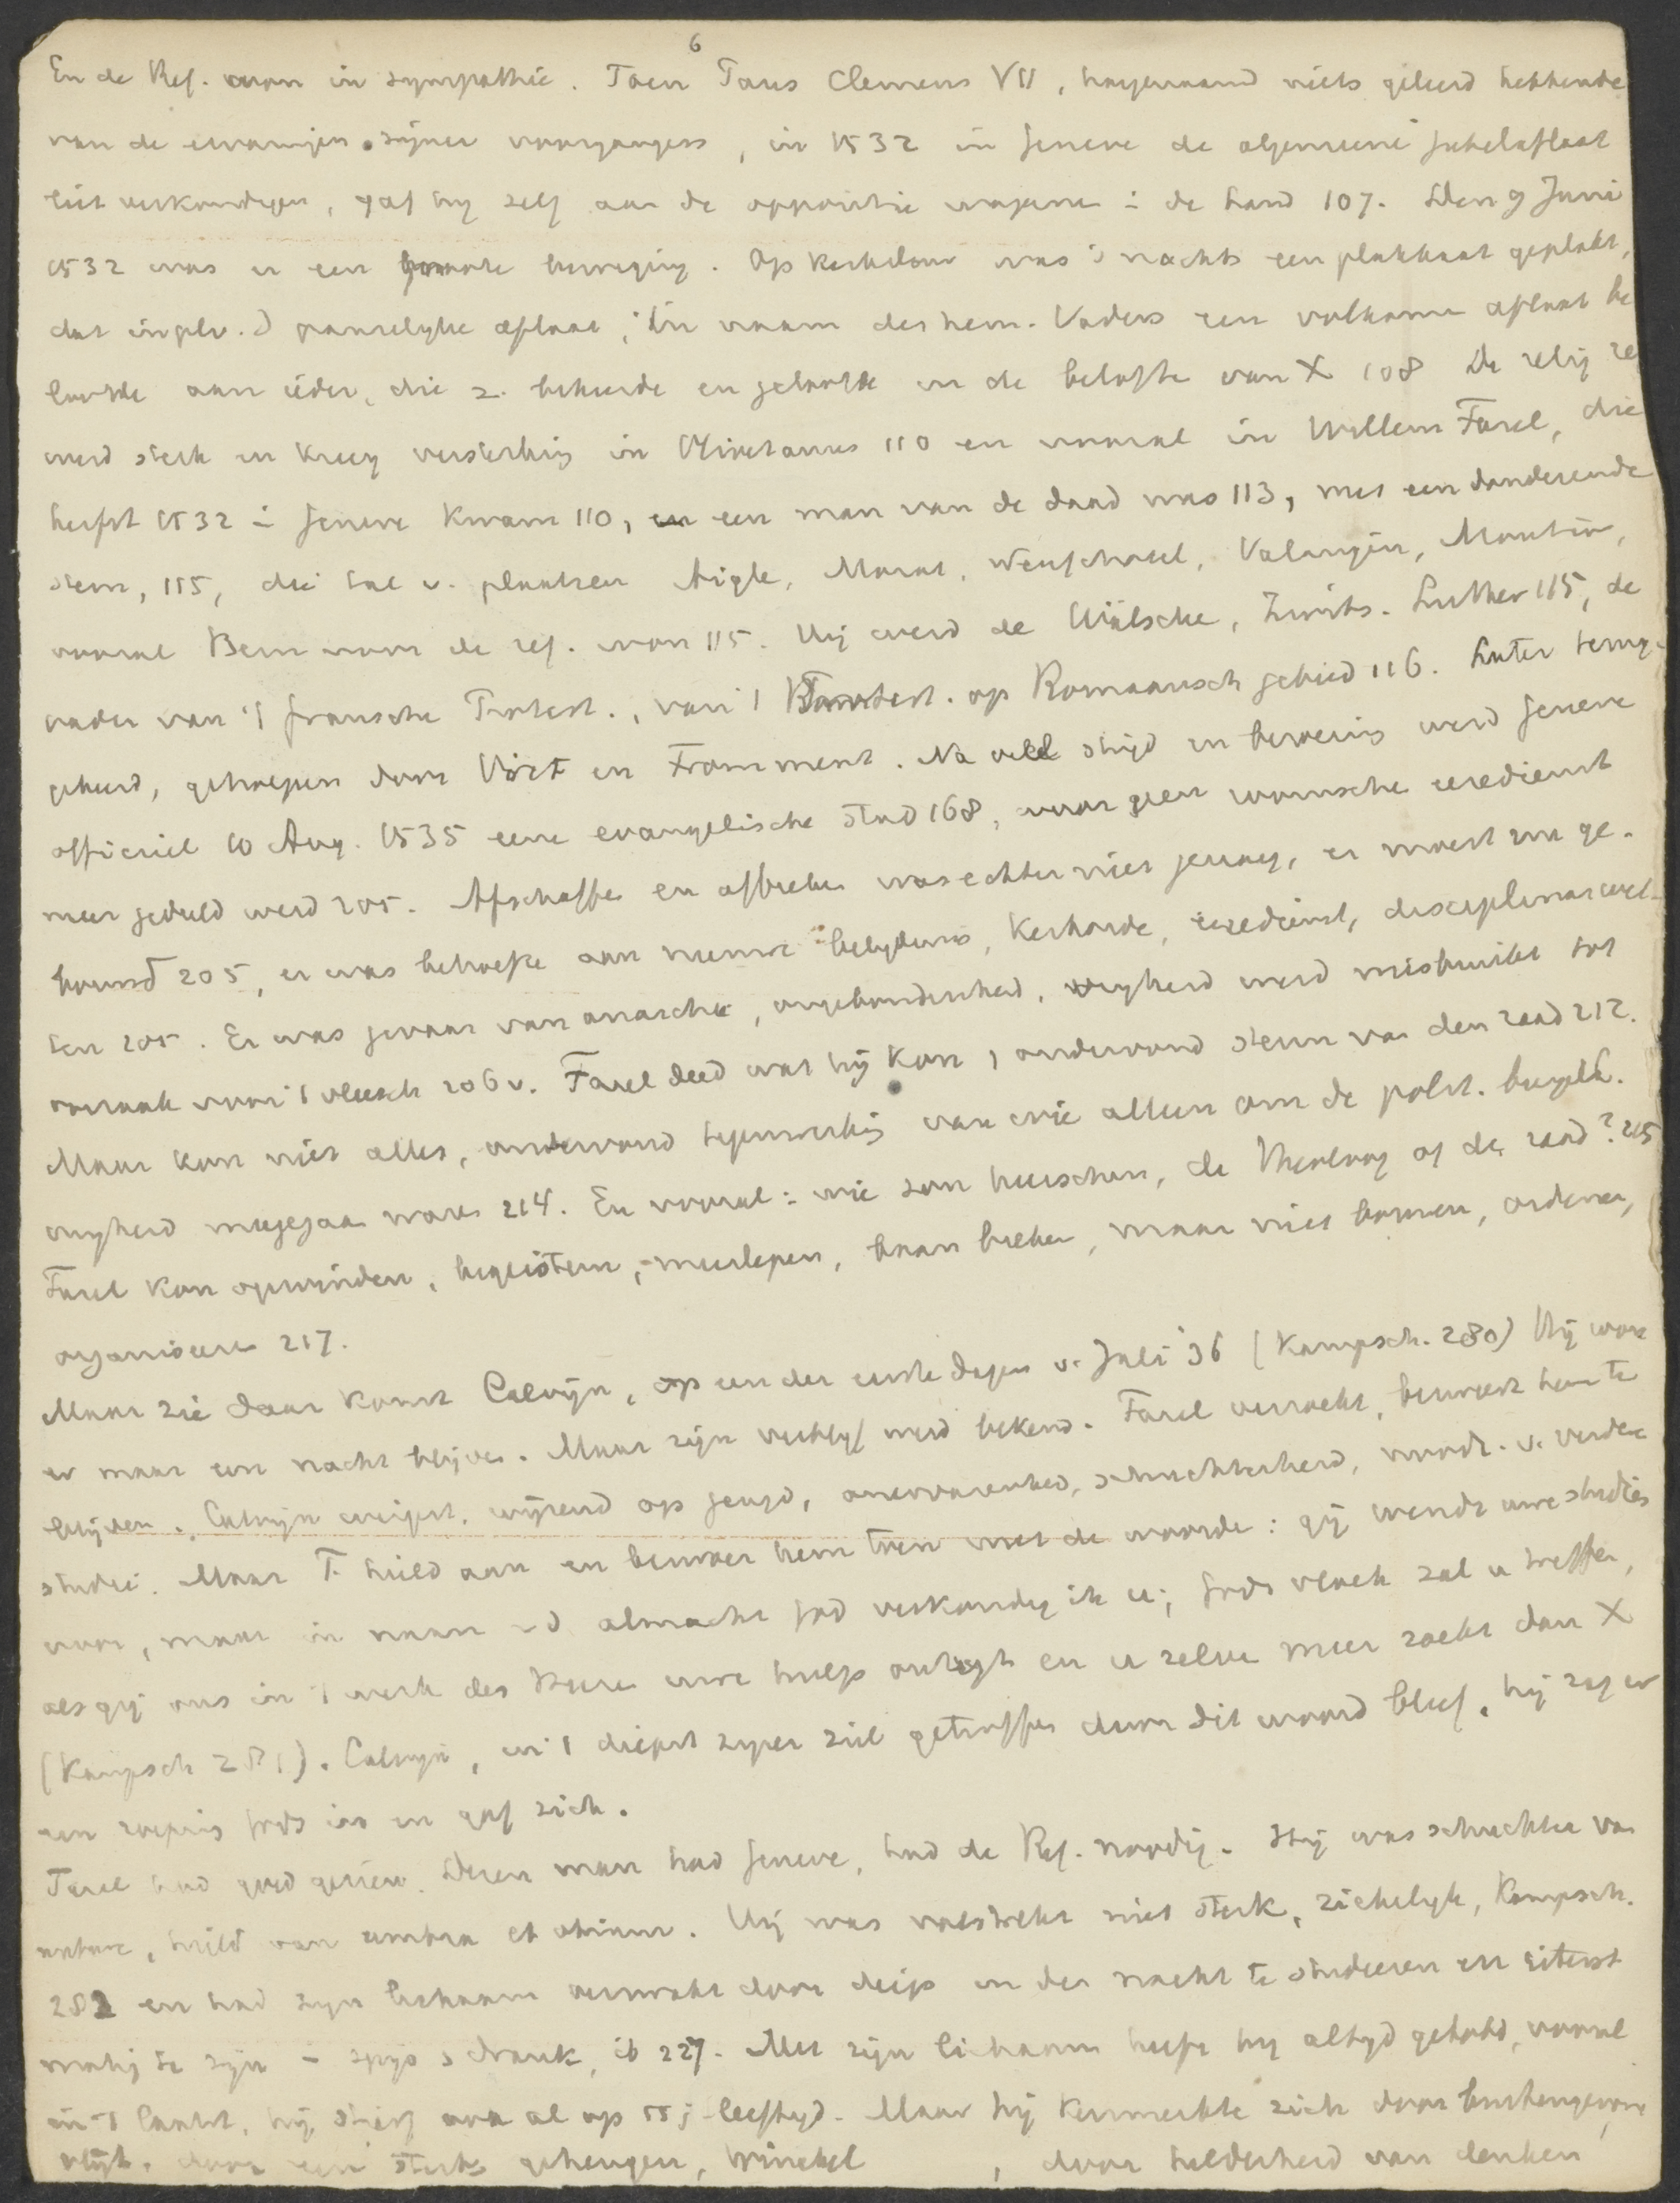 6
En de Ref. won in sympathie. Toen Paus Clemens VII, hoegenaamd niets geleerd hebbende
van de ervaringen zijner voorgangers, in 1532 in Geneve de algemeene jubelaflaat
liet verkondigen, gaf hij zelf aan de oppositie wapenen i de hand 107. Den 9 Juni
1532 was er een groote beweging. Op kerkdeur was 's nachts een plakkaat geplakt,
dat in plv. d pauselijke aflaat, in naam des hem. Vaders een volkomen aflaat be
loofde aan ieder, die z. bekeerde en geloofde in de belofte van X 108 De relig
werd sterk en kreeg versterking in Olivetanus 110 en vooral in Willem Farel, die
herfst 1532 i Geneve kwam 110, en een man van de daad was 113, met een donderende
stem, 115, die tal v. plaatsen Aigle, Morat, Neufchatel, Valangin, Moutier,
vooral Bern voor de ref. won 115. Hij werd de Wälsche, Zwits. Luther 115, de
vader van 't fransche Protest., van 't Protest. op Romaansch gebied 116. Later terug-
gekeerd, geholpen door Viret en Froment. Na veel strijd en beroering werd Geneve
officieel 10 Aug. 1535 eene evangelische stad 168, waar geen roomsche eredienst
meer geduld werd 205. Afschaffen en afbreken was echter niet genoeg, er moest ook ge-
bouwd 205, er was behoefte aan nieuwe belijdenis, kerkorde, eredienst, disciplinair wet-
ten 205. Er was gevaar van anarchie, ongebondenheid, vrijheid werd misbruikt tot
oorzaak voor 't vleesch 206 v. Farel deed wat hij kon, ondervond steun van den raad 212.
Maar kon niet alles, ondervond tegenwerking van wie alleen om de polit. burgelk.
vrijheid meegegaan waren 214. En vooral: wie zou heerschen, de theoloog of de raad? 215
Farel kon opwinden, begeistern, meeslepen, baan breken, maar niet bouwen, ordenen,
organiseren 217.
Maar zie daar komt Calvijn, op een der eerste dagen v. Juli 36 (Kampsch. 280) Hij wou
er maar een nacht blijven. Maar zijn verblijf werd bekend. Farel verzoekt, bezweert hem te
blijven. Calvijn weigert, wijzend op jeugd, onervarenheid, schuchterheid, noodz. v. verdere
studie. Maar F. hield aan en bezwoer hem toen met de woorde: gij wendt uwe studies
voor, maar in naam v d almacht God verkondig ik u; Gods vloek zal u treffen,
als gij ons in 't werk des Heren uwe hulp ontzegt en u zelve meer zoekt dan X
(Kampsch 281). Calvijn, in 't diepst zijner ziel getroffen door dit woord bleef, hij zag er
een roeping Gods in en gaf zich.
Farel had goed gezien. Dezen man had Geneve, had de Ref. noodig. Hij was schuchter van
nature, hield van umbra et otium. Hij was volstrekt niet sterk, ziekelijk, Kampsch.
282 en had zijn lichaam verzwakt door diep in den nacht te studeeren en uiterst
matig te zijn i spijs & drank, ib 227. Met zijn lichaam heeft hij altijd getobd, vooral
in 't laatst, hij stierf ook al op 55 j. leeftijd. Maar hij kenmerkte zich door buitengewone
vlijt, door een sterk geheugen, , door helderheid van denken